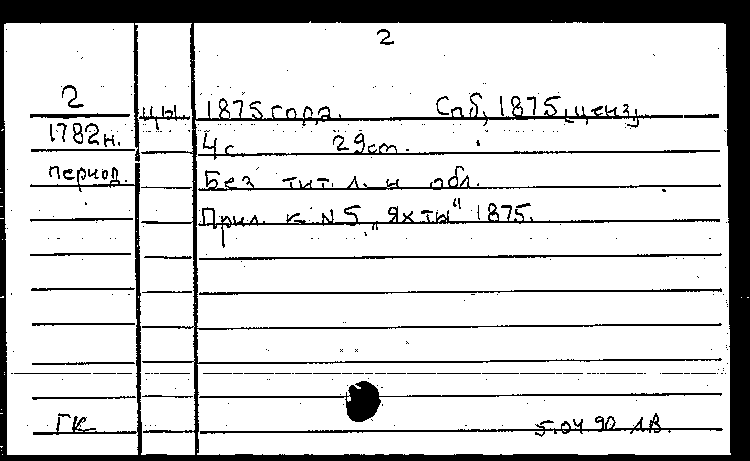 2
2
цы 1875 года. Спб, 1875 [ценз]
1782н. 4с. 29см.
период. Без тит. л. и обл.
Прил. к N 5 „Яхты“ 1875.
ГК 5.04 90 ЛВ.